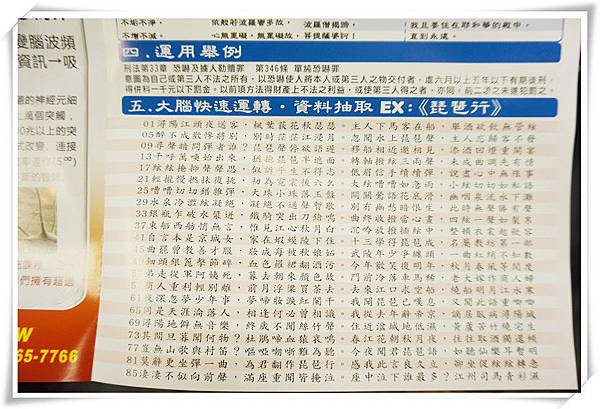 變腦波頻
資訊→吸
的神經元細
上萬個突觸,
00兆以上的突
式改變、連接
們擁有超過
W
65-7766
不垢不淨,
不增不減。
依般若波羅蜜多故,
心無罣礙,無罣礙故,
波羅僧揭諦,
菩提薩婆訶!
我且要住在耶和華的殿中,
直到永遠。
四、運用舉例
刑法第33章 恐嚇及擄人勒贖罪 第346條 單純恐嚇罪
意圖為自己或第三人不法之所有,以恐嚇使人將本人或第三人之物交付者,處六月以上五年以下有期徒刑,
得併科一千元以下罰金。以前項方法得財產上不法之利益,或使第三人得之者,亦同。前二項之未遂犯罰之。
五、大腦快速運轉・資料抽取 EX:《琵琶行》
01潯陽江頭夜送客,楓葉荻花秋瑟瑟。主人下馬客在船,舉酒欲飲無管絃
05醉不成歡慘將別,別時茫茫江浸月。忽聞水上琵琶聲,主人忘歸客不發
09尋聲暗問彈者誰?琵琶聲停欲語遲。移船相近邀相見,添酒回燈重開宴
13千呼萬喚始出來,猶抱琵琶半遮面。轉軸撥絃三兩聲,未成曲調先有情
17絃絃掩抑聲聲思,似訴平生不得志。低眉信手續續彈,說盡心中無限事
21輕攏慢撚抹復挑,初為霓裳後六么。大絃嘈嘈如急雨,小絃切切如私語
25嘈嘈切切錯雜彈,大珠小珠落玉盤。間關鶯語花底滑,幽咽泉流水下灘
29水泉冷澀絃凝絕,凝絕不通聲暫歇。別有幽愁暗恨生,此時無聲勝有聲
33銀瓶乍破水漿迸,鐵騎突出刀鎗鳴。曲終收撥當心畫,四絃一聲如裂帛
37東船西舫悄無言,惟見江心秋月白。沉吟放撥插絃中,整頓衣裳起斂容
41自言本是京城女,家在蝦蟆陵下住。十三學得琵琶成,名屬教坊第一部
45曲罷曾教善才服,妝成每被秋娘妒。武陵年少爭纏頭,一曲紅綃不知數
49細頭銀篦擊節碎,血色羅裙翻酒污。今年歡笑復明年,秋月春風等閒度
弟走從軍阿姨死,暮去朝來顏色故。門前冷落車馬稀,老大嫁作商人婦
商人重利輕別離,前月浮梁買茶去。去來江口守空船,繞船明月江水寒
61夜深忽夢少年事,夢啼妝淚紅闌干。我聞琵琶已嘆息,又聞此語重唧唧
65同是天涯淪落人,相逢何必曾相識。我從去年辭帝京,謫居臥病潯陽城
69潯陽地僻無音樂,終歲不聞絲竹聲。住近湓城地低濕,黃蘆苦竹繞宅生
73其間旦暮聞何物?杜鵑啼血猿哀鳴。春江花朝秋月夜,往往取酒還獨傾
77豈無山歌與村笛?嘔啞嘲哳難為聽。今夜聞君琵琶語,如聽仙樂耳暫明
81莫辭更坐彈一曲,為君翻作琵琶行。感我此言良久立,卻坐促絃絃轉急
85淒淒不似向前聲,滿座重聞皆掩泣。座中泣下誰最多?江州司馬青衫濕